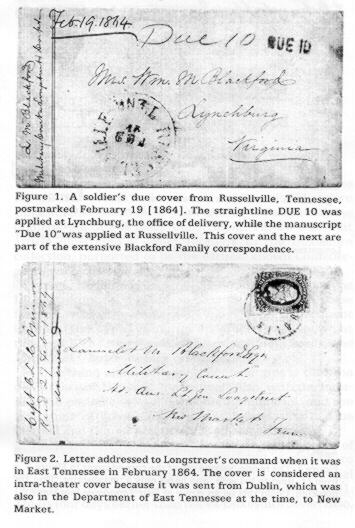 Feb 19. 1864
Due 10
DUE 10
L. M. Blackford
Mrs. Wm. M. Blackford
Lynchburg
Virginia
Figure 1. A soldier's due cover from Russellville, Tennessee,
postmarked February 19 [1864]. The straightline DUE 10 was
applied at Lynchburg, the office of delivery, while the manuscript
"Due 10" was applied at Russellville. This cover and the next are
part of the extensive Blackford Family correspondence.
Capt C. L. C. Minor
Rec'd 27 Feb. 1864
answered
Lancelot M. Blackford Esq
Military Court
Lt Gen Longstreet
New Market
Tenn
Figure 2. Letter addressed to Longstreet's command when it was
in East Tennessee in February 1864. The cover is considered an
intra-theater cover because it was sent from Dublin, which was
also in the Department of East Tennessee at the time, to New
Market.